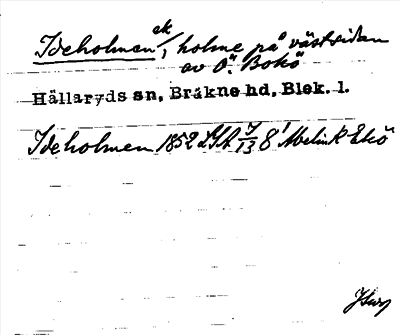 Ideholmen ek/, holme på västsidan
av Ö. Bokö
Hällaryds sn, Bräkne hd, Blek. l.
Ideholmen 1852 LSA 7/13 8'